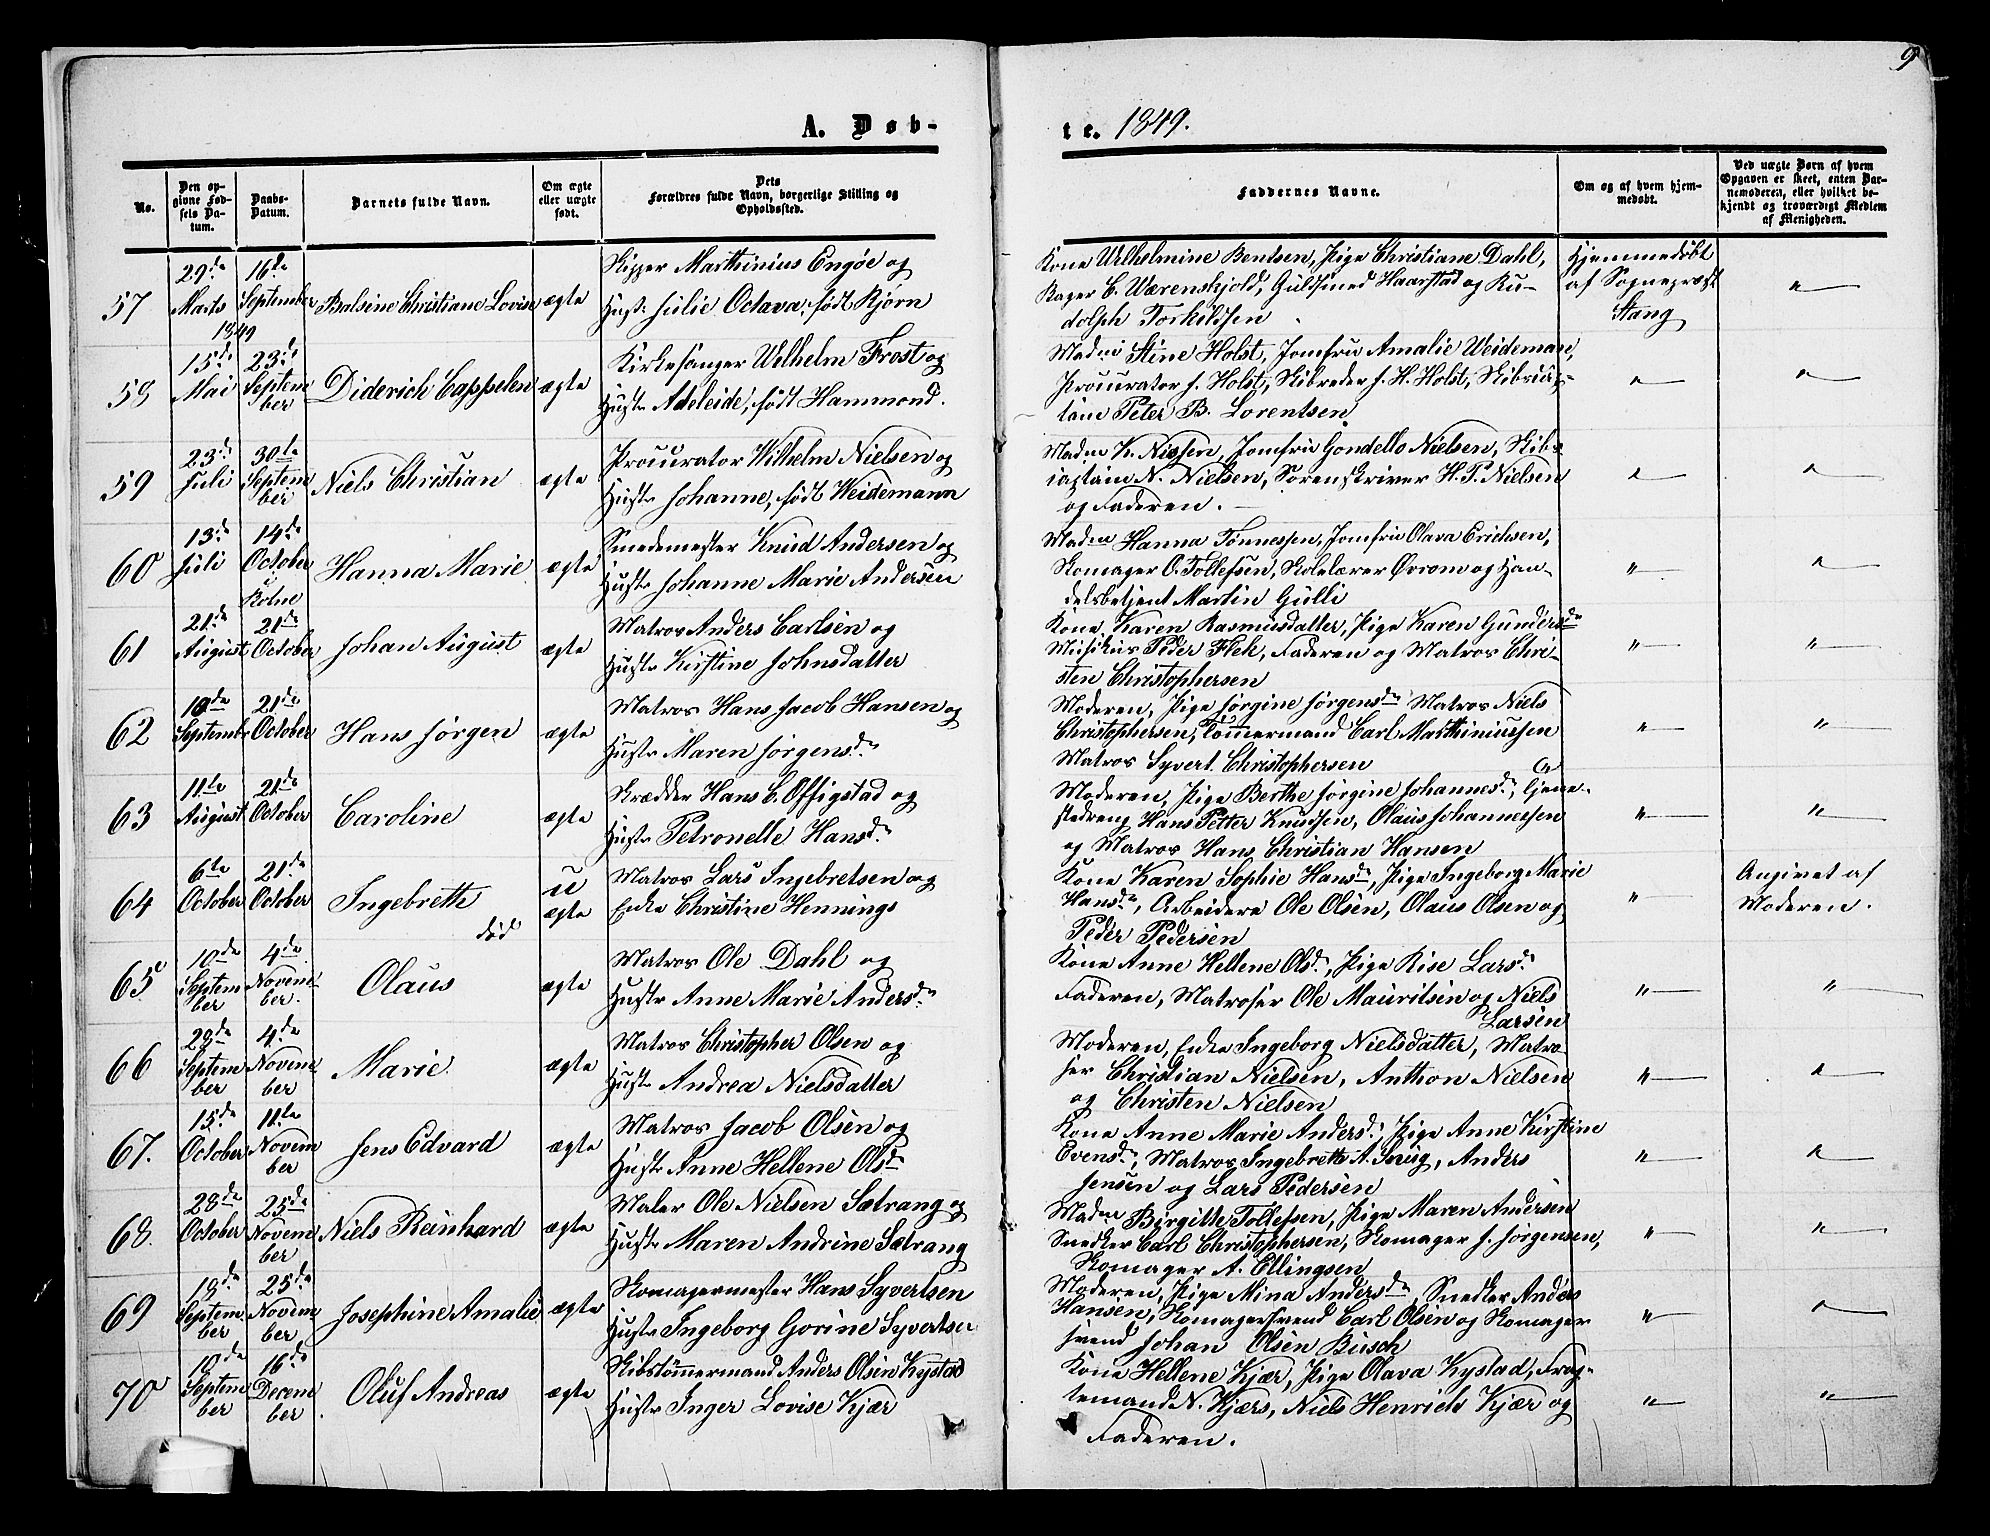 9
A. Døb-
te. 1849.
No.
Den op-
givne Fød-
sels Da-
tum.
Daabs-
Datum.
Barnets fulde Navn.
Om ægte
eller uægte
født.
Dets
Forældres fulde Navn, borgerlige Stilling og
Opholdssted.
Faddernes Navne.
Om og af hvem hjem-
medøbt.
Ved uægte Børn af hvem
Opgaven er skeet, enten Bar-
nemoderen, eller hvilket be-
kjendt og troværdigt Medlem
af Menigheden.
57
29de
Marts
1849
16de
September
Balsine Christiane Lovise
ægte
Skipper Marthinius Engøe og
Hust: Julie Octava, født Bjørn
Kone Wilhelmine Bentsen, Pige Christiane Dahl,
Bager C. Wærenskjold, Guldsmed Haarstad og Ru-
dolph Torkildsen
Hjemmedøbt
af Sogneprest
Stang
"
58
15de
Mai
23de
Septem
ber
Diderich Cappelen
ægte
Kirkesanger Wilhelm Frost og
Hustr Adeleide, født Hammond.
Madm Stine Holst, Jomfru Amalie Weideman,
Procurator J. Holst, Skibreder J. H. Holst, Skibscap-
tain Peter B. Lorentsen
"
"
59
23de
Juli
30te
Septem
ber
Niels Christian
ægte
Procurator Wilhelm Nielsen og
Hustr Johanne, født Weidemann
Madm K. Nissen, Jomfru Gondello Nielsen, Skibs-
captain N. Nielsen, Sorenskriver H. P. Nielsen
og Faderen.
"
"
60
13de
Juli
14de
October
i
Kolne
Hanna Marie
ægte
Smedemester Knud Andersen og
Hustr Johanne Marie Andersen
Madm Hanna Tønnessen, Jomfru Olava Erichsen,
Skomager O. Tollefsen, Skolelærer Øvrom og Han-
delsbetjent Martin Gulli
"
"
61
21de
August
21de
October
Johan August
ægte
Matros Anders Carlsen og
Hustr Kirstine Johnsdatter
Kone Karen Rasmusdatter, Pige Karen Gundersdr
Musikus Peder Flek, Faderen og Matros Chri-
sten Christophersen
"
"
62
18de
Septembr
21de
October
Hans Jørgen
ægte
Matros Hans Jacob Hansen og
Hustr Maren Jørgensdr
Moderen, Pige Jørgine Jørgensdr Matros Niels
Christophersen, Tømmermand Carl Marthiniussen
Matros Syvert Christophersen
"
"
63
11te
August
21de
October
Caroline
ægte
Skrædder Hans C. Offigstad og
Hustr Petronelle Hansdr
Moderen, Pige Berthe Jørgine Johannesdr, Tjene-
stedreng Hans Petter Knudsen, Olaus Johannessen
og Matros Hans Christian Hansen
"
"
64
6te
October
21de
October
Ingebreth
død
u
ægte
Matros Lars Ingebretsen og
Enke Christine Hennings
Kone Karen Sophie Hansdr, Pige Ingeborg Marie
Hansdr, Arbeidere Ole Olsen, Olaus Olsen og
Peder Pedersen
"
Angivet af
Moderen.
65
10de
Septem
ber
4de
Novem
ber.
Olaus
ægte
Matros Ole Dahl og
Hustr Anne Marie Andersdr
Kone Anne Hellene Olsdr, Pige Rise Larsdr
Faderen, Matroser Ole Mauritsen og Niels
Larsen
"
"
66
28de
Septem
ber
4de
Novem
ber
Marie
ægte
Matros Christopher Olsen og
Hustr Andrea Nielsdatter
Moderen, Enke Ingeborg Nielsdatter, Matro-
ser Christian Nielsen, Anthon Nielsen
og Christen Nielsen
"
"
67.
15de
October
11te
Novem
ber
Jens Edvard
ægte
Matros Jacob Olsen og
Hustr Anne Hellene Olsdr
Kone Anne Marie Andersdr, Pige Anne Kirstine
Evensdr, Matros Ingebreth A. Snug, Anders
Jensen og Lars Pedersen
"
"
68
28de
October
25de
Novem
ber
Niels Reinhard
ægte
Maler Ole Nielsen Sætrang og
Hustr Maren Andrine Sætrang
Madm Birgitte Tollefsen, Pige Maren Andersen
Snedker Carl Christophersen, Skomager J. Jørgensen,
Skomager A. Ellingsen
"
"
69
19de
Septem
ber
25de
Novem
ber
Josephine Amalie
ægte
Skomagermester Hans Syvertsen
Hustr Ingeborg Gorine Syvertsen
Moderen, Pige Mina Andersdr, Snedker Anders
Hansen, Skomagersvend Carl Olsen og Skomager
svend Johan Olsen Busch
"
"
70
10de
Septem
ber
16de
Decem
ber
Oluf Andreas
ægte
Skibstømmermand Anders Olsen Kystad
Hustr Inger Lovise Kjær
Kone Hellene Kjær, Pige Olava Kystad, Frag-
temand N. Kjærs, Niels Henrich Kjær og
Faderen.
"
"